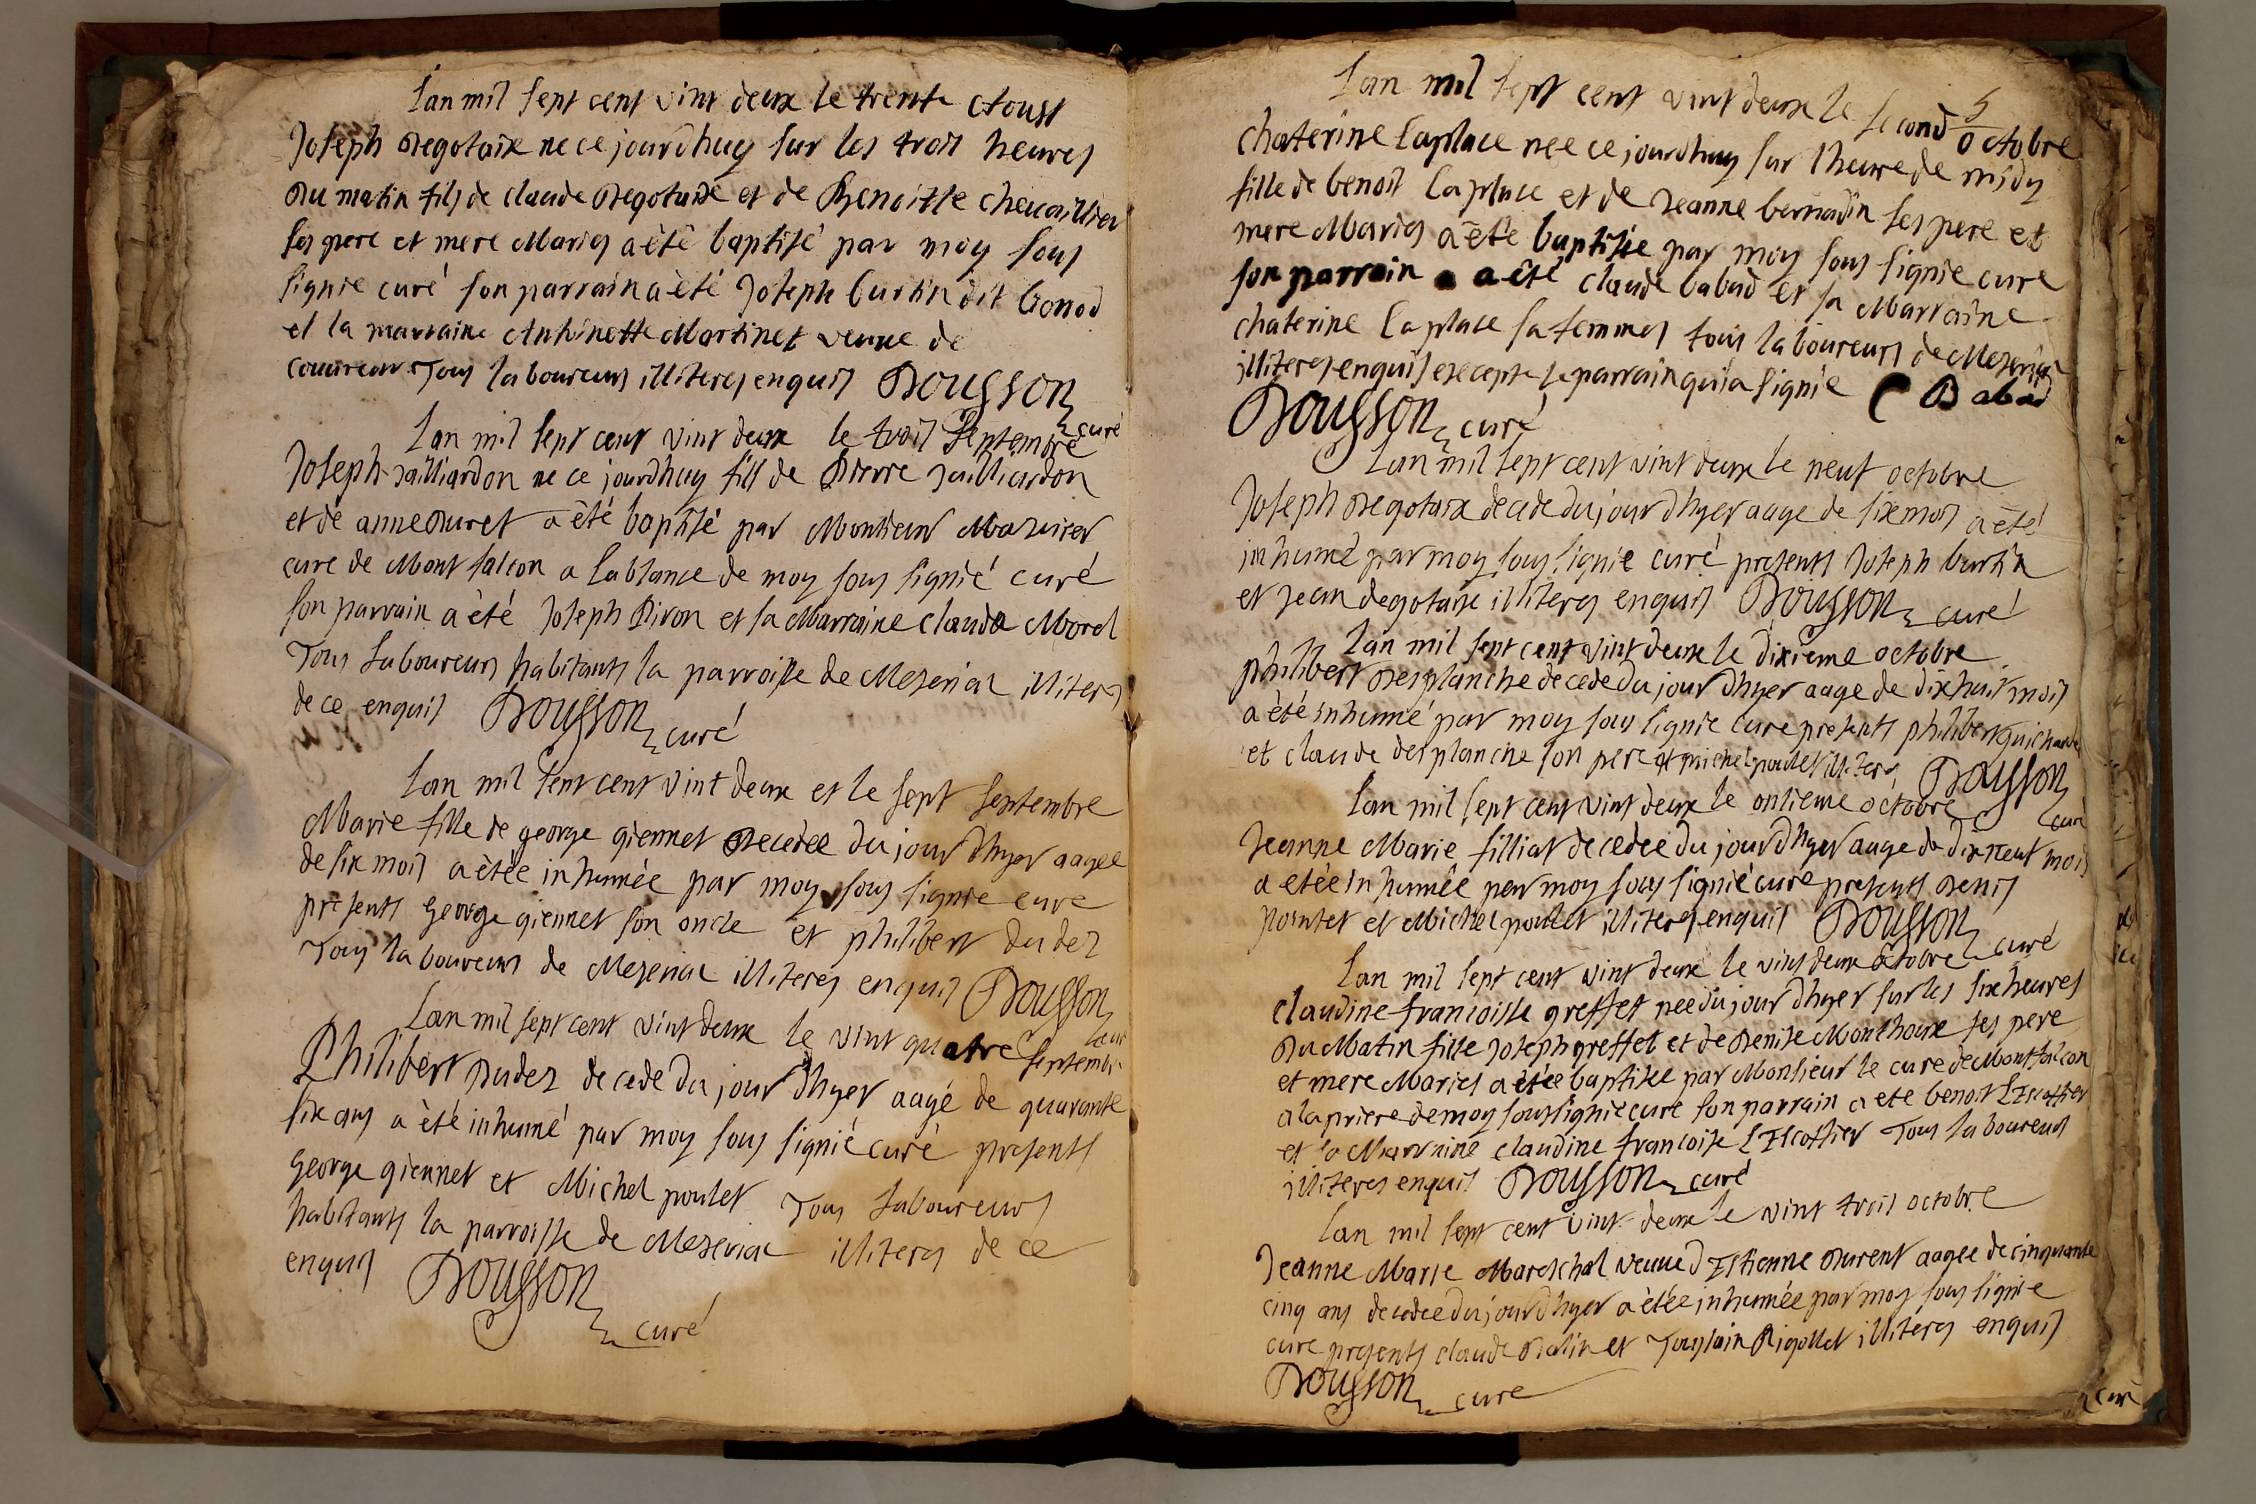 Lan mil sept cent vint deux le trente Aoust
Joseph Degotaix ne ce jourdhuy sur les trois heures
Du matin fils de claude Degotaix et de Benoitte chevaillier
ses pere et mere Mariés a êté baptisé par moy sous
signie curé son parrain a èté Joseph burtin dit bonod
et la marraine Antoinette Martinet veuve de
couvreur Tous laboureurs illiterés enquis Dousson
curé
Lan mil sept cent vint deux le trois Septembre
Joseph Jailliardon ne ce jourdhuy fils de Pierre Jailliardon
et de anne Duret a êté baptisé par Monsieur Mazuier
cure de Mont falcon a labsance de moy sous signié curé
son parrain a èté Joseph Piron et sa Marraine clauda Morel
Tous Laboureurs habitants la parroisse de Mezeriat illiteres
de ce enquis Dousson curé
Lan mil sept cent vint deux et le sept septembre
Marie fille de george giennet Decedee du jour dhyer aagee
de six mois a ètée inhumée par moy sous signie cure
presents george giennet son oncle et philibert dudez
Tous laboureurs de Mezeriat illiterés enquis Dousson
curé
Lan mil sept cent vint deux le vint quatre septembre
Philibert Dudez decede du jour dhyer aagé de quarante
six ans a èté inhumé par moy sous signié curé presents
George giennet et Michel poulet Tous Laboureurs
habitants la parroisse de Mezeriat illiteres de ce
enquis Dousson curé
Lan mil sept cent vint deux le second 5 octobre
chaterine Laplace nee ce jourdhuy sur lheure de midy
fille de benoit Laplace et de Jeanne bernadin ses pere et
mere Mariés a êté baptisée par moy sous signie cure
son parrain a êté claude babad et sa Marraine
chaterine Laplace sa femme tous laboureurs de Mezeriat
illiteres enquis excepte le parrain qui a signie C Babad
Dousson curé
Lan mil sept cent vint deux le neuf octobre
Joseph Degotaix decede du jour dhyer aage de six mois a èté
inhumé par moy sous signie curé presents Joseph burtin
et Jean degotaix illiteres enquis Dousson curé
Lan mil sept cent vint deux le dixieme octobre
philibert Desplanche decede du jour dhyer aage de dixhuit mois
a èté inhumé par moy sous signie cure presents philibert guichard
et claude desplanche son pere et michel poulet illiteres Dousson
curé
Lan mil sept cent vint deux le onsieme octobre
Jeanne Marie filliat decedee du jour dhyer aage de dix neuf mois
a etée inhumée par moy sous signié cure presents denis
pointet et Michel poulet illiteres enquis Dousson curé
Lan mil sept cent vint deux le vint deux octobre
claudine francoise greffet nee du jour dhyer sur les six heures
Du Matin fille Joseph greffet et de Denise Monthoux ses pere
et mere Mariés a étée baptisée par Monsieur le cure de Mont falcon
a la priere de moy sous signie curé son parrain a ete benoit LEscoffier
et la Marraine claudine francoise LEscoffier Tous laboureurs
illiteres enquis Dousson curé
Lan mil sept cent vint deux le vint trois octobre
Jeanne Marie Mareschal veuve d Estienne Durent aagee de cinquante
cinq ans decedee du jour dhyer a êtée inhumée par moy sous signie
cure presents claude Ratin et Toussain Rigollet illiteres enquis
Dousson cure